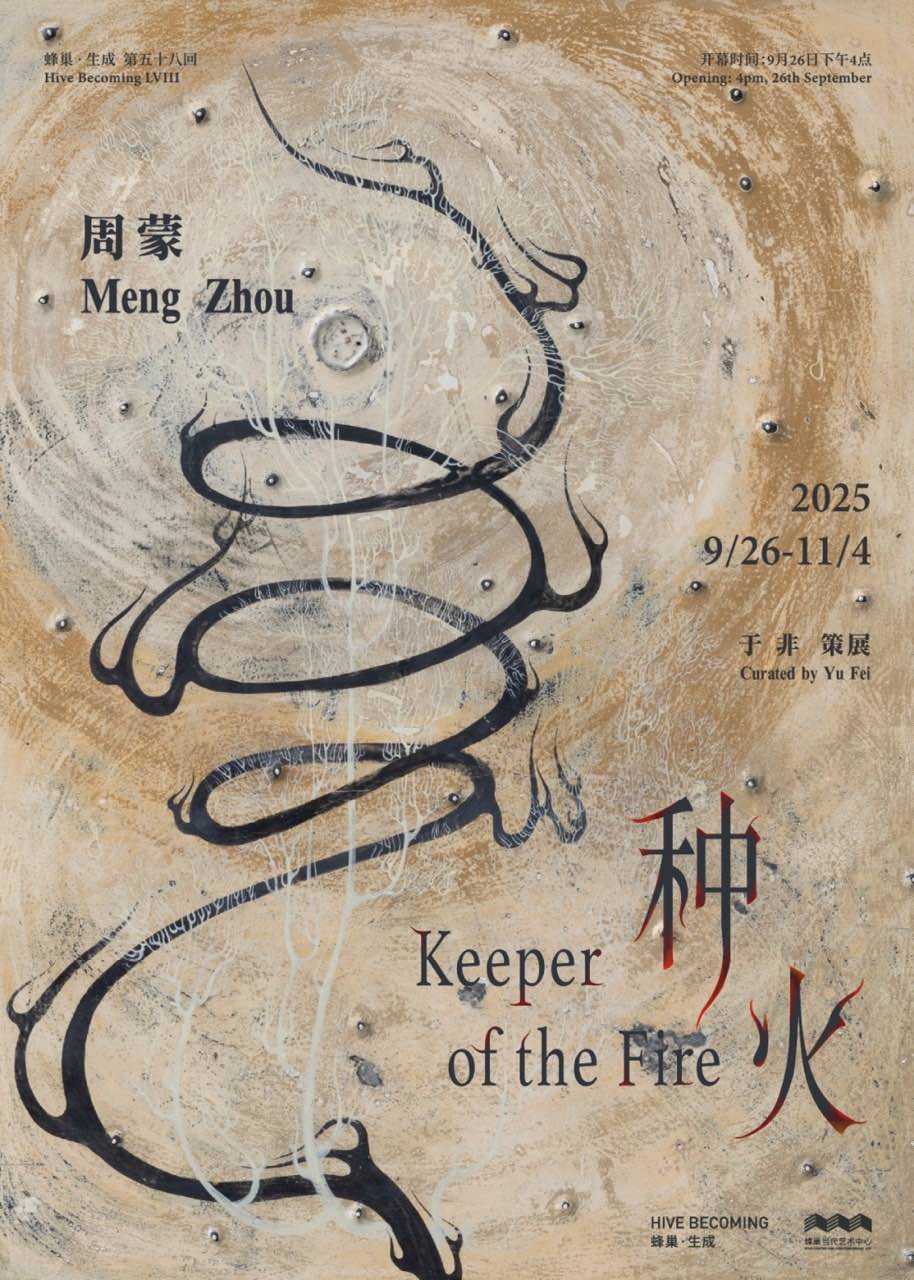 蜂巢·生成 第五十八回
Hive Becoming LVIII
开幕时间:9月26日下午4点
Opening: 4pm, 26th September
周蒙
Meng Zhou
2025
9/26-11/4
于非 策展
Curated by Yu Fei
种火
Keeper
of the Fire
HIVE BECOMING
蜂巢·生成
蜂巢当代艺术中心